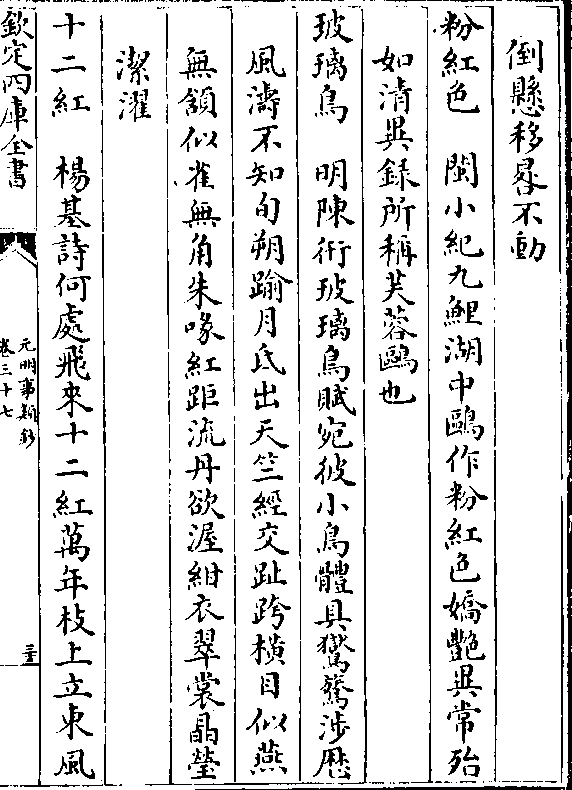 倒懸移晷不動
粉紅色　閩小紀九鯉湖中鷗作粉紅色嬌艷異常殆
如清異録所稱芙蓉鷗也
玻璃鳥　明陳衎玻璃鳥賦宛彼小鳥體具鸑鷟涉厯
風濤不知旬朔踰月氏出天竺經交趾跨橫目似燕
無頷似雀無角朱喙紅距流丹欲渥紺衣翠裳晶瑩
潔濯
十二紅　楊基詩何處飛來十二紅萬年枝上立東風
欽定四庫全書
元明事類鈔
卷三十七
二十